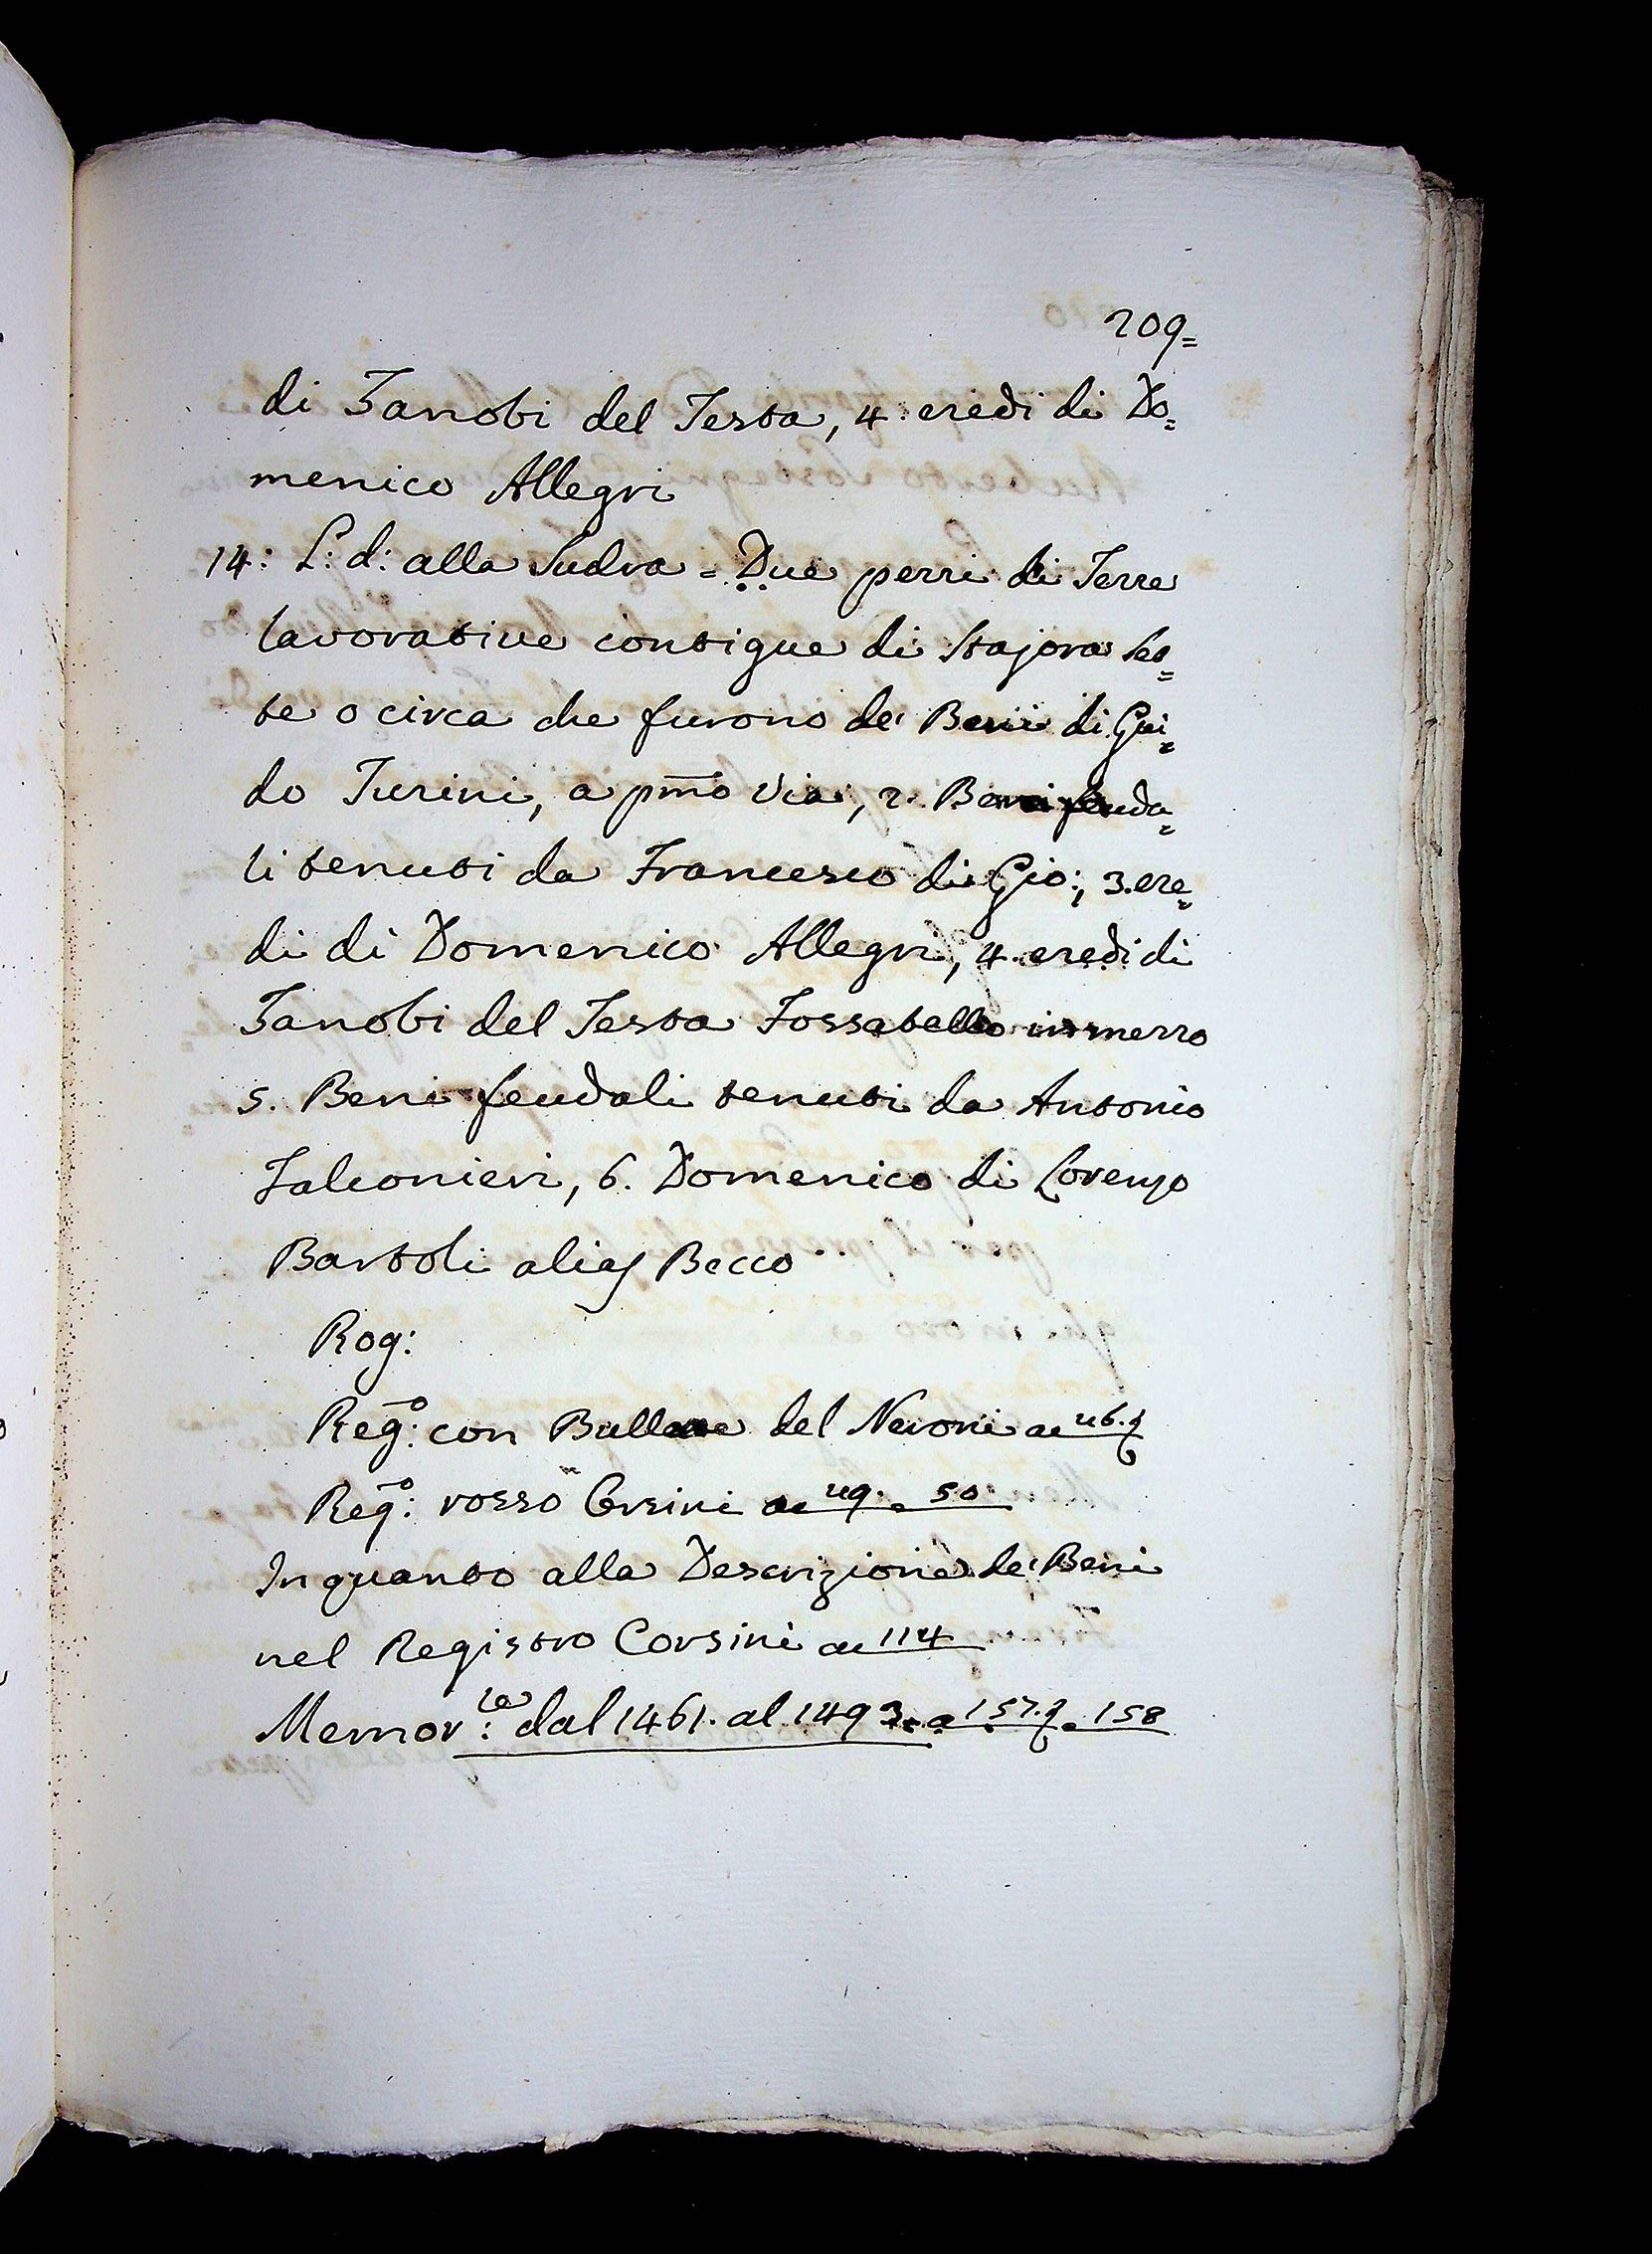 209=
di Zanobi del Testa, 4. eredi di Do=
menico Allegri
14: L: d: alla Sudra = Due pezzi di Terre
lavorative contigue di Stajora Set=
te o circa che furono de' Beni di Gui=
do Turini, a pmo Via, 2. Beni feuda=
li tenuti da Francesco di Gio:, 3. ere=
di di Domenico Allegri, 4. eredi di
Zanobi del Testa Fossatello in mezzo
5. Beni feudali tenuti da Antonio
Falconieri, 6. Domenico di Lorenzo
Bartoli alias Becco
Rog:
Rego: con Bullette del Neroni a
Rego: rosso Corsini a 50
In quanto alla Descrizione de' Beni
nel Registro Corsini a 114
Memorle: dal 1461. al 1493. a 157. 158